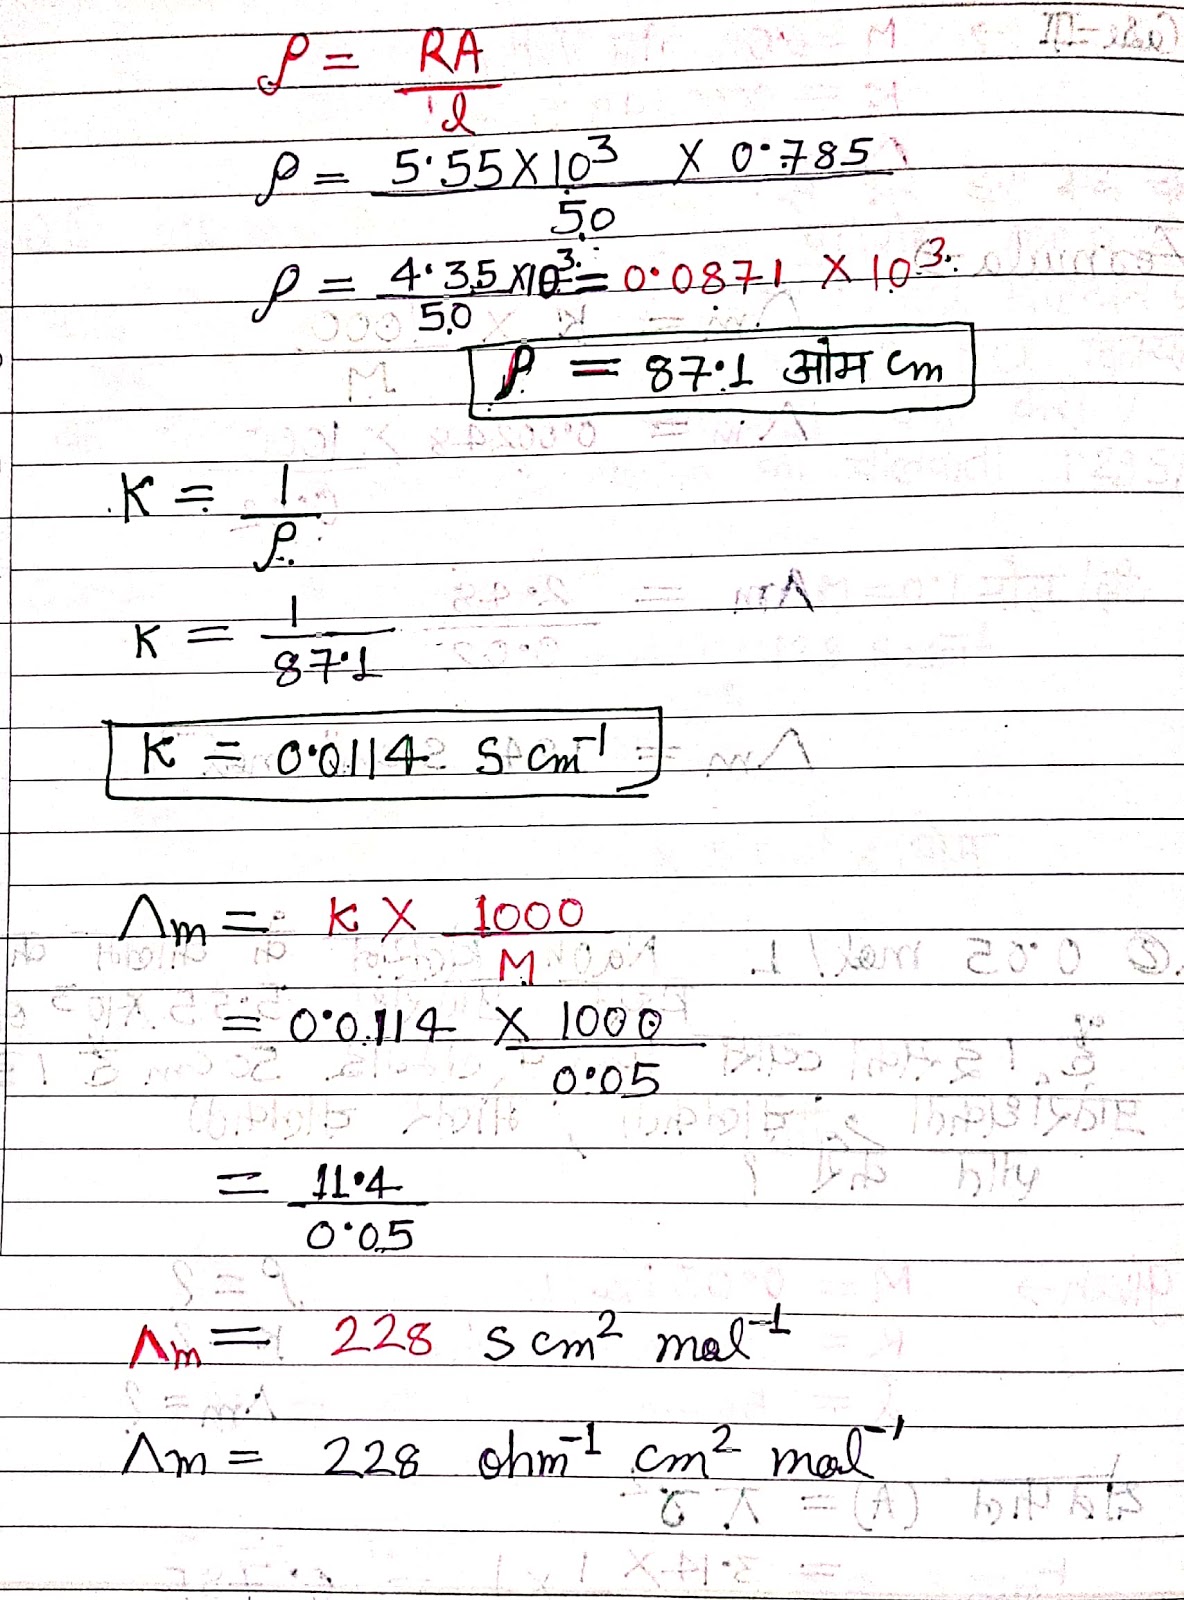 ρ = RA/l
ρ = 5.55 X 10³ X 0.785/50
ρ = 4.35 X10³/50 = 0.0871 X 10³
ρ = 87.1 ओम cm
K = 1/ρ
K = 1/87.1
K = 0.0114 S cm⁻¹
Λm = K X 1000/M
= 0.0114 X 1000/0.05
= 11.4/0.05
Λm = 228 S cm² mol⁻¹
Λm = 228 ohm⁻¹ cm² mol⁻¹